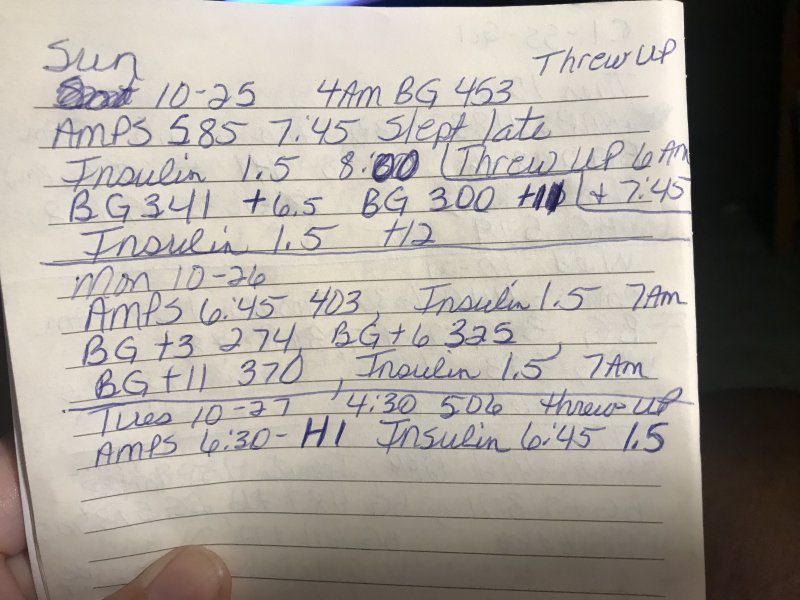 Sun
Threw UP
10-25 4AM BG 453
AMPS 585 7:45 Slept late
Insulin 1.5 8:00 Threw UP 6 AM
BG 341 +6.5 BG 300 +11 + 7:45
Insulin 1.5 +12
Mon 10-26
AMPS 6:45 403, Insulin 1.5 7AM
BG +3 274, BG +6 325,
BG +11 370, Insulin 1.5 7AM
Tues 10-27 4:30 506 threw UP
AMPS 6:30- HI Insulin 6:45 1.5